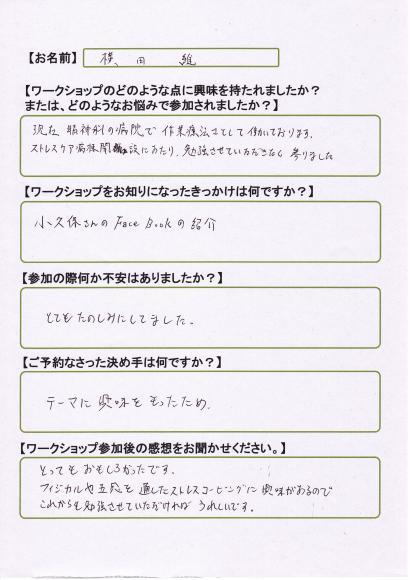 【お名前】 横田 雄
【ワークショップのどのような点に興味を持たれましたか?
または、どのようなお悩みで参加されましたか?】
現在 精神科の病院で 作業療法士として働いております。
ストレスケア病棟開設にあたり、勉強させていただきたく 参りました
【ワークショップをお知りになったきっかけは何ですか?】
小久保さんの Face Book の 紹介
【参加の際何か不安はありましたか?】
とてもたのしみにしてました。
【ご予約なさった決め手は何ですか?】
テーマに 興味を もったため。
【ワークショップ参加後の感想をお聞かせください。】
とっても おもしろかったです。
フィジカルや五感を 通したストレスコーピングに 興味があるので
これからも勉強させていただければ うれしいです。